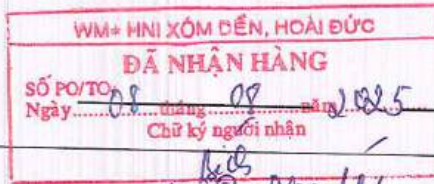 WM+ HNI XÓM DỀN, HOÀI ĐỨC
ĐÃ NHẬN HÀNG
SỐ PO/TO
Ngày 08 tháng 08 năm 2025
Chữ ký người nhận